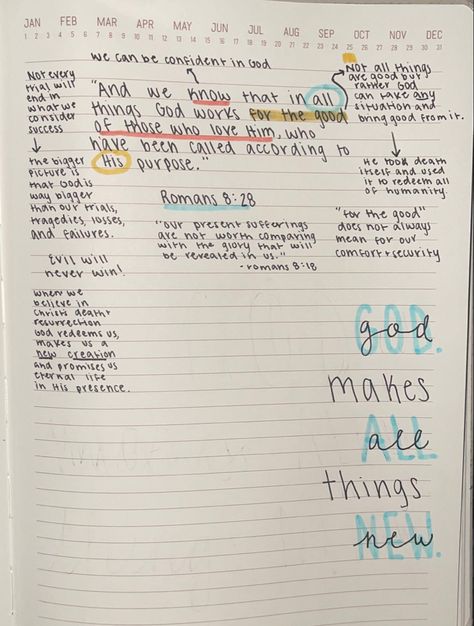 JAN FEB MAR APR MAY JUN JUL AUG SEP OCT NOV DEC
1 2 3 4 5 6 7 8 9 10 11 12 13 14 15 16 17 18 19 20 21 22 23 24 25 26 27 28 29 30 31
we can be confident in God
Not every
trial will
end in
what we
consider
success
the bigger
picture is
that God is
way bigger
than our trials,
tragedies, losses,
and failures.
Evil will
never win!
when we
believe in
Christ's death +
resurrection
God redeems us,
makes us a
new creation
and promises us
eternal life
in His presence.
"And we know that in all
things God works for the good
of those who love Him, who
have been called according to
His purpose."
Romans 8:28
"our present sufferings
are not worth comparing
with the glory that will
be revealed in us."
-romans 8:18
Not all things
are good but
rather God
can take any
situation and
bring good from it.
He took death
itself and used
it to redeem all
of humanity.
"for the good"
does not always
mean for our
comfort + security
GOD.
god
makes
ALL
all
things
NEW.
new